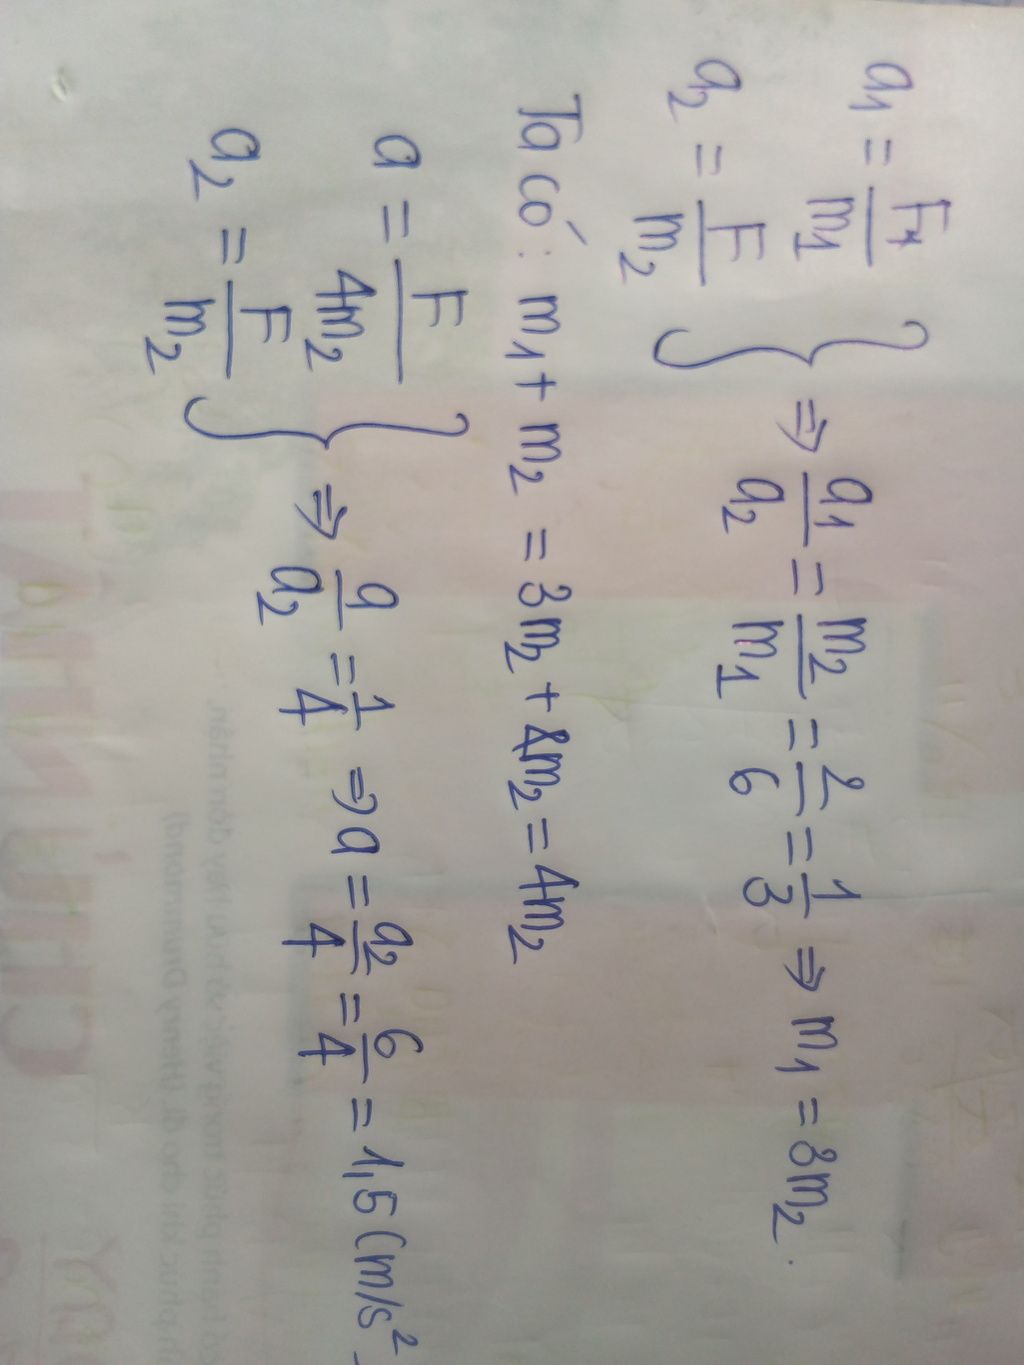 a₁ = F/m₁
a₂ = F/m₂ } ⇒ a₁/a₂ = m₂/m₁ = 2/6 = 1/3 ⇒ m₁ = 3m₂.
Ta có: m₁ + m₂ = 3m₂ + m₂ = 4m₂
a = F/4m₂
a₂ = F/m₂ } ⇒ a/a₂ = 1/4 ⇒ a = a₂/4 = 6/4 = 1,5 (m/s²